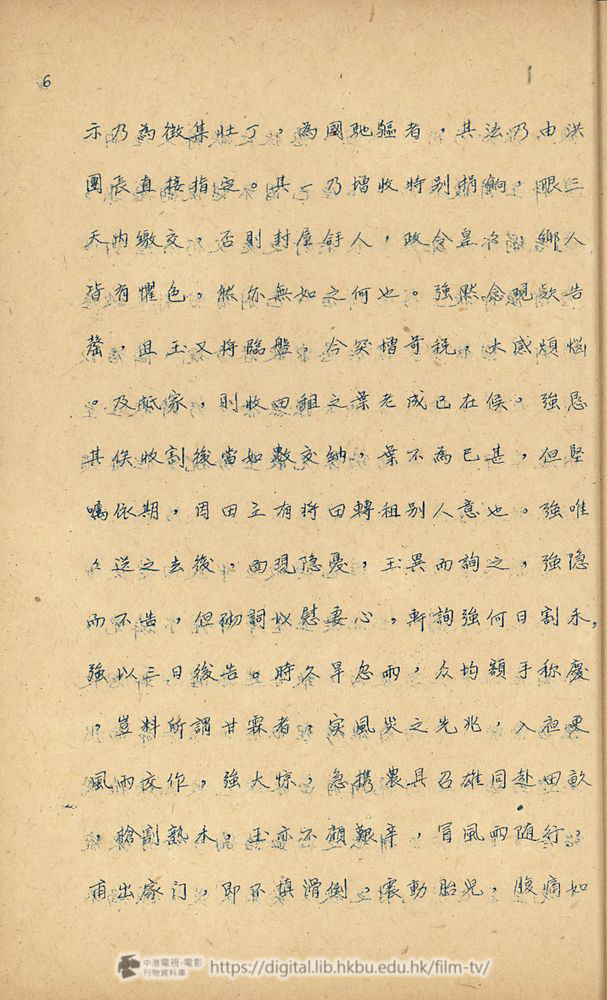 6
示乃為徵集壯丁，為國馳軀者，其法乃由洪
團長直接指定。其一乃增收特别捐餉，限三
天內繳交，否則封屋拏人，政令皇々，鄉人
皆有懼色，然亦無如之何也。強默念現款告
罄，且玉又將臨盤，今突增苛稅，大感煩惱
。及抵家，則收田租之葉老成已在候，強恳
其俟收割後當如數交納，葉不為已甚，但堅
囑依期，因田主有將田轉租别人意也。強唯
々送之去後，面現隐憂，玉異而詢之，強隐
而不告，但砌詞以慰妻心，軒詢強何日割禾，
強以三日後告。時久旱忽雨，众均額手称慶
，豈料所謂甘霖者，实風災之先兆，入夜果
風雨交作，強大惊，急携農具召雄同赴田畝
，搶割熟禾，玉亦不顧艱辛，冒風雨随行，
甫出家门，即不慎滑倒，震動胎兒，腹痛如
中港電視·電影
刊物資料庫
https://digital.lib.hkbu.edu.hk/film-tv/